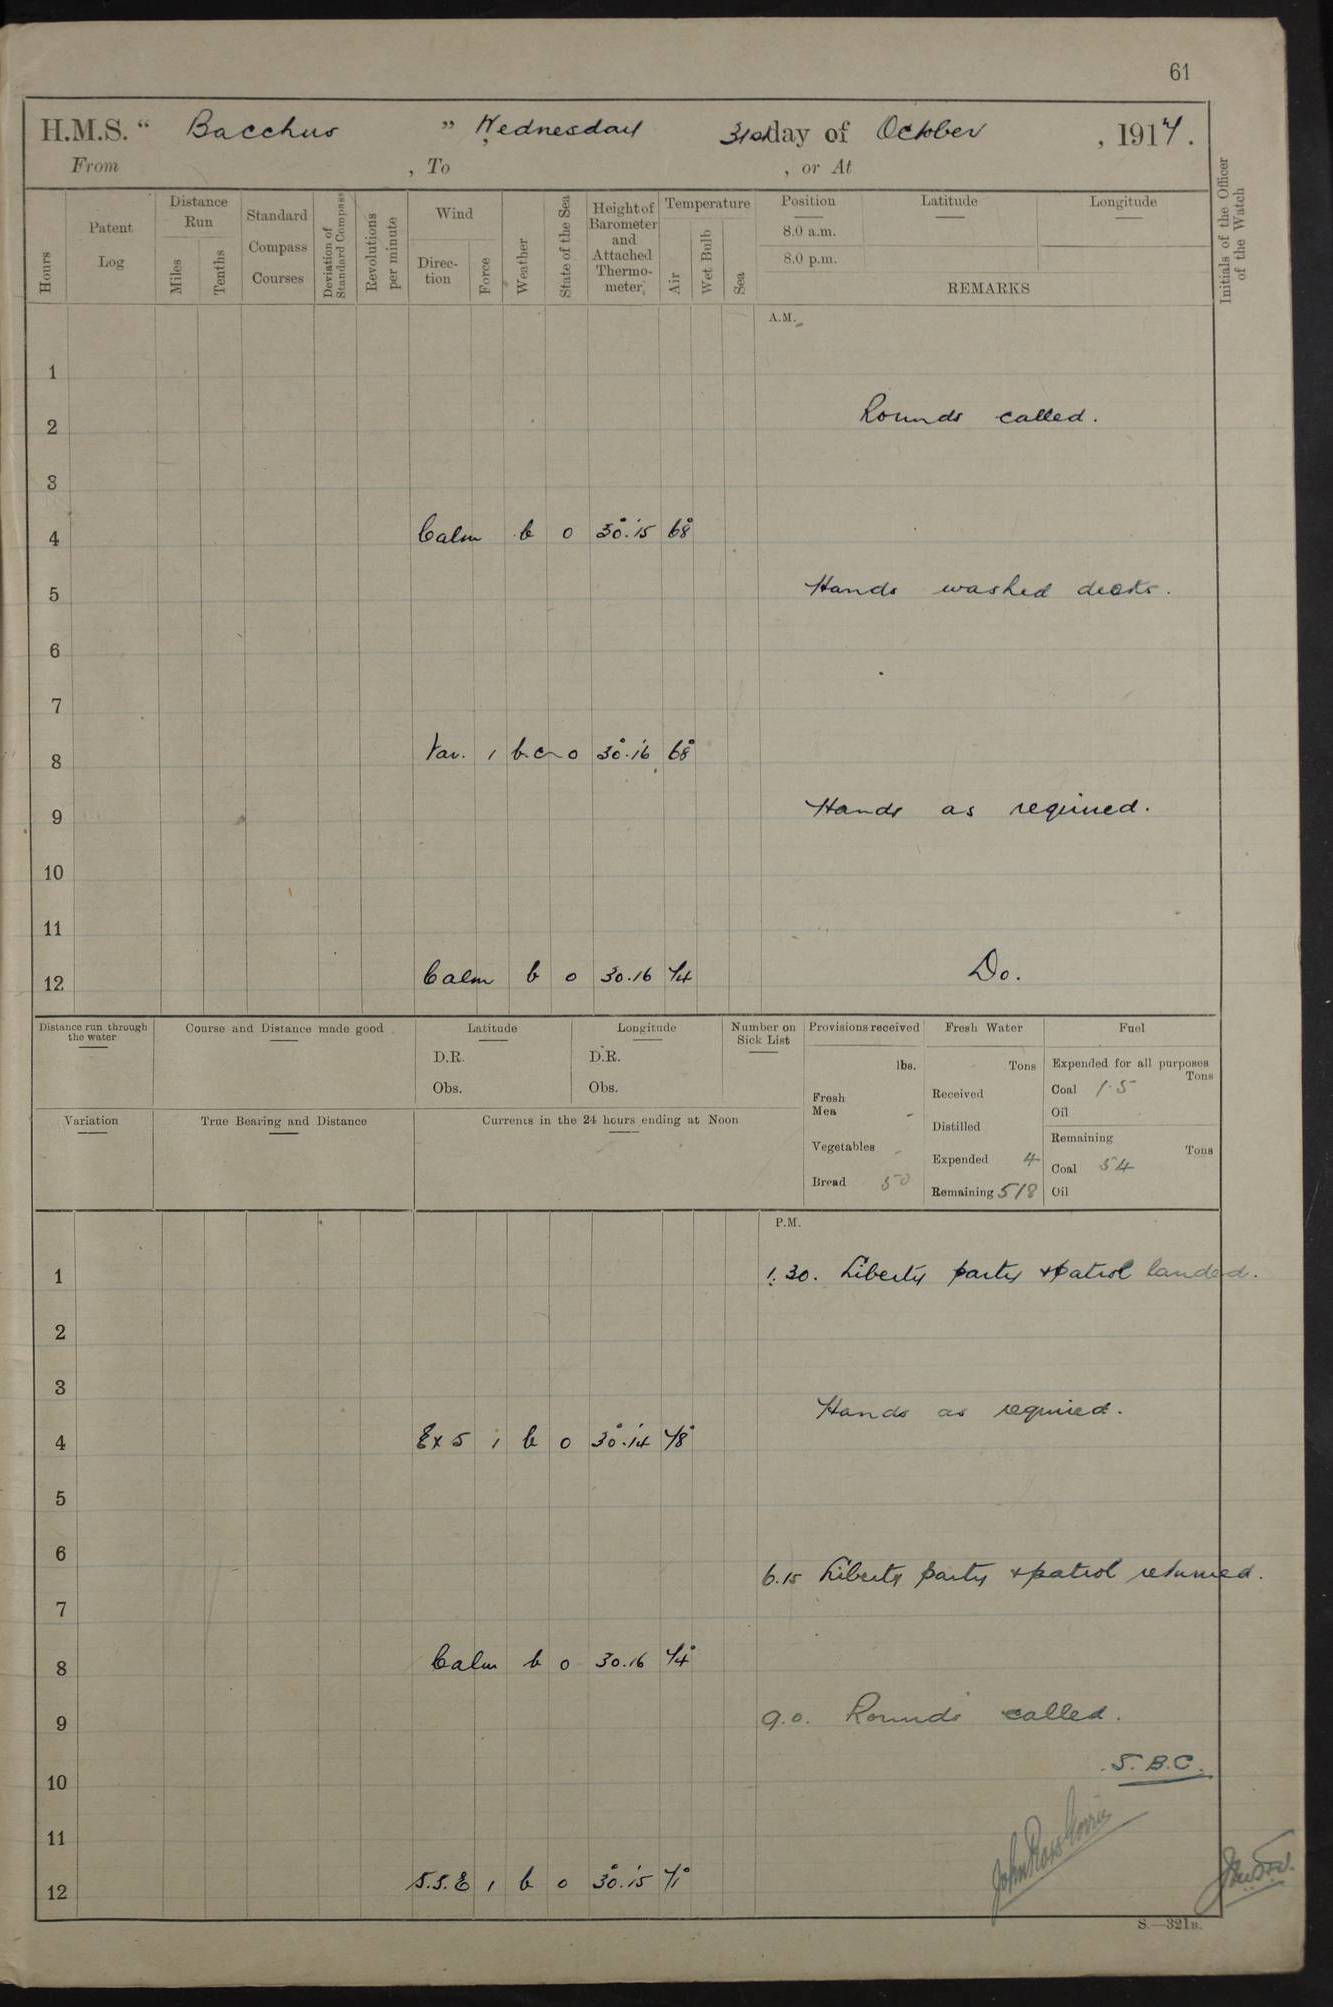 61
H.M.S. “ Bacchus ” Wednesday 31st day of October , 1917.
From , To , or At
Hours
Patent Log
Distance Run
Miles
Tenths
Standard Compass Courses
Deviation of Standard Compass
Revolutions per minute
Wind
Direc-tion
Force
Weather
State of the Sea
Height of Barometer and Attached Thermo-meter
Temperature
Air
Wet Bulb
Sea
Position
8.0 a.m.
8.0 p.m.
Latitude
Longitude
REMARKS
Initials of the Officer of the Watch
A.M.
1
2 Rounds called.
3
4 Calm b 0 30.15 68
5 Hands washed decks.
6
7
8 Var. 1 b.c 0 30.16 68
9 Hands as required.
10
11
12 Calm b 0 30.16 74 Do.
Distance run through the water
Course and Distance made good
Latitude
D.R.
Obs.
Longitude
D.R.
Obs.
Number on Sick List
Provisions received
lbs.
Fresh Mea -
Vegetables -
Bread 50
Fresh Water
Tons
Received
Distilled
Expended 4
Remaining 518
Fuel
Expended for all purposes
Tons
Coal 1.5
Oil
Remaining
Tons
Coal 54
Oil
Variation
True Bearing and Distance
Currents in the 24 hours ending at Noon
P.M.
1 1.30. Liberty party & patrol landed.
2
3 Hands as required.
4 E x S 1 b 0 30.14 78
5
6 6.15 Liberty party & patrol returned.
7
8 Calm b 0 30.16 74
9 9.0. Rounds called.
S.B.C.
10
11
12 S.S.E 1 b 0 30.15 71
S.—321B.